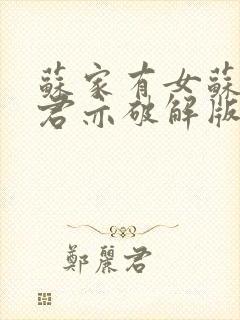 蘇家有女蘇
君亦破解版
鄭麗君